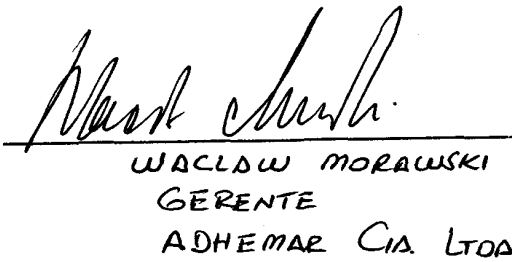 WACLAW MORAWSKI
GERENTE
ADHEMAR CIA. LTDA